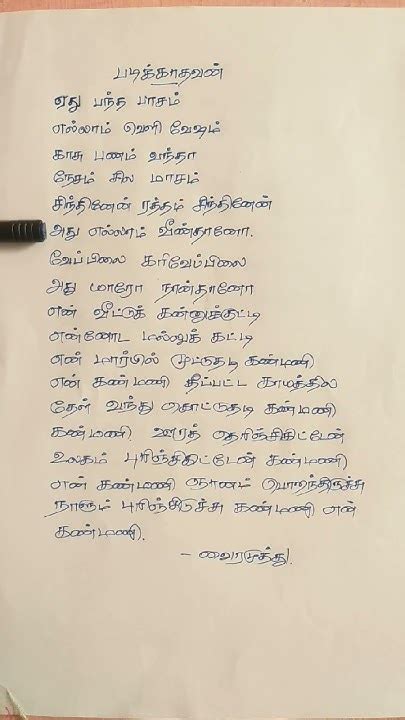 படிக்காதவன்
ஏது பந்த பாசம்
எல்லாம் வெளி வேஷம்
காசு பணம் வந்தா
நேசம் சில மாசம்
சிந்தினேன் ரத்தம் சிந்தினேன்
அது எல்லாம் வீண்தானோ.
வேப்பிலை கரிவேப்பிலை
அது யாரோ நான்தானோ
என் வீட்டுக் கன்னுக்குட்டி
என்னோட மல்லுக் கட்டி
என் மார்பில் முட்டுதடி கண்மணி
என் கண்மணி தீப்பட்ட காயத்தில
தேள் வந்து கொட்டுதடி கண்மணி
கண்மணி ஊரத் தெரிஞ்சிகிட்டேன்
உலகம் புரிஞ்சிகிட்டேன் கண்மணி
என் கண்மணி ஞானம் பொறந்திருச்சு
நாளும் புரிஞ்சிடுச்சு கண்மணி என்
கண்மணி.
- வைரமுத்து.